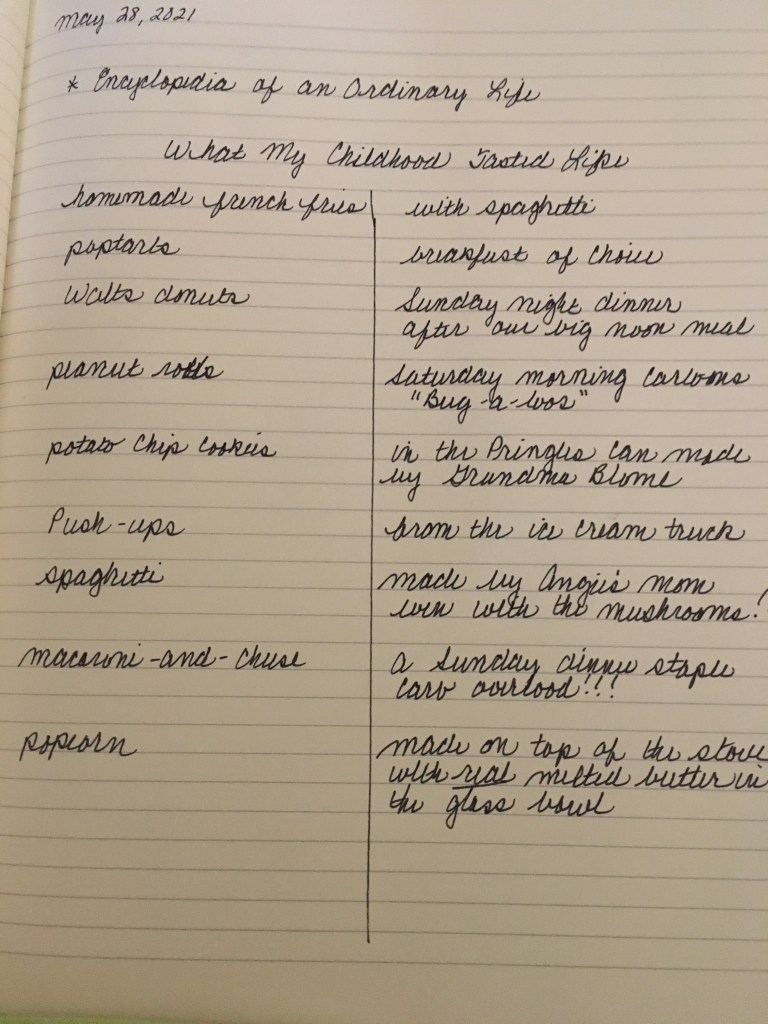 May 28, 2021
* Encyclopedia of an Ordinary Life
What My Childhood Tasted Like
homemade french fries
with spaghetti
poptarts
breakfast of choice
Walts donuts
Sunday night dinner
after our big noon meal
peanut rolls
Saturday morning cartoons
"Bug-a-loos"
potato chip cookies
in the Pringles can made
by Grandma Blome
Push-ups
from the ice cream truck
spaghetti
made by Angie's mom
even with the mushrooms!
macaroni-and-cheese
a Sunday dinner staple
carb overload!!!
popcorn
made on top of the stove
with real melted butter in
the glass bowl